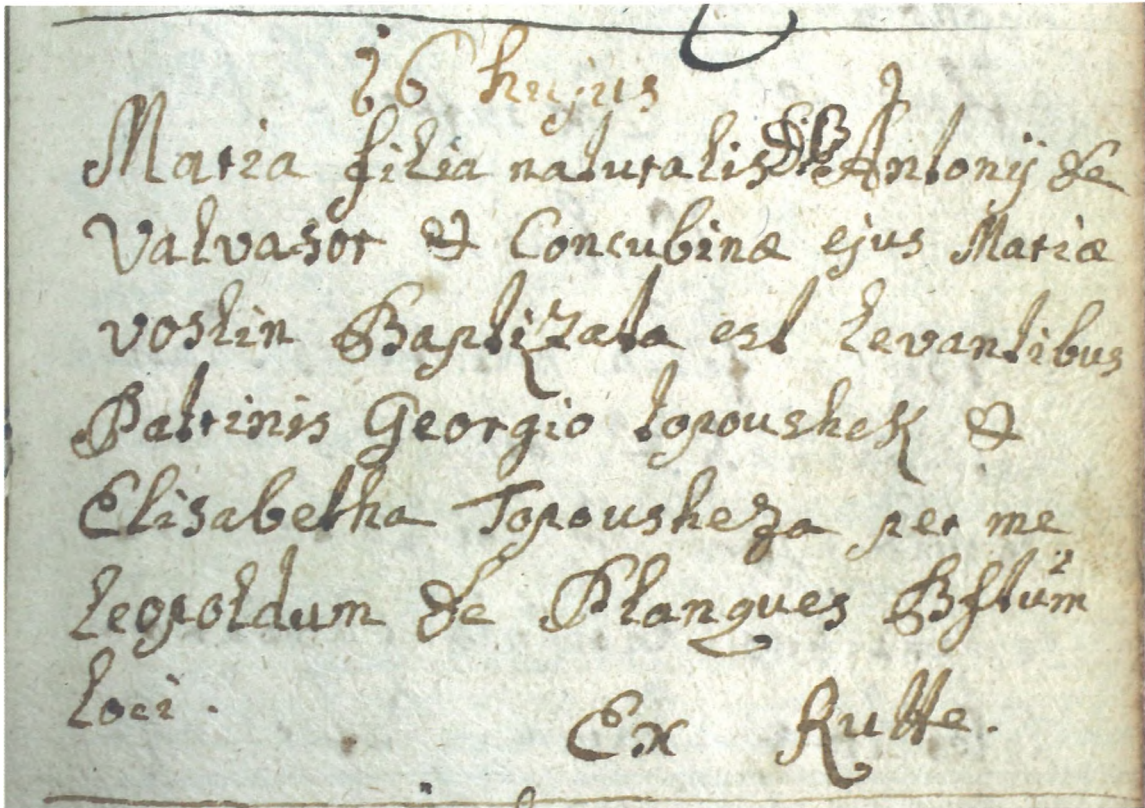 16 hujus
Maria filia naturalis Antonij de
Valvasor & Concubinæ ejus Mariæ
voslin Baptizata est levantibus
Patrinis Georgio topoushek &
Elisabetha Topousheza per me
leopoldum de Plangues
loci.
Ex Rutte.